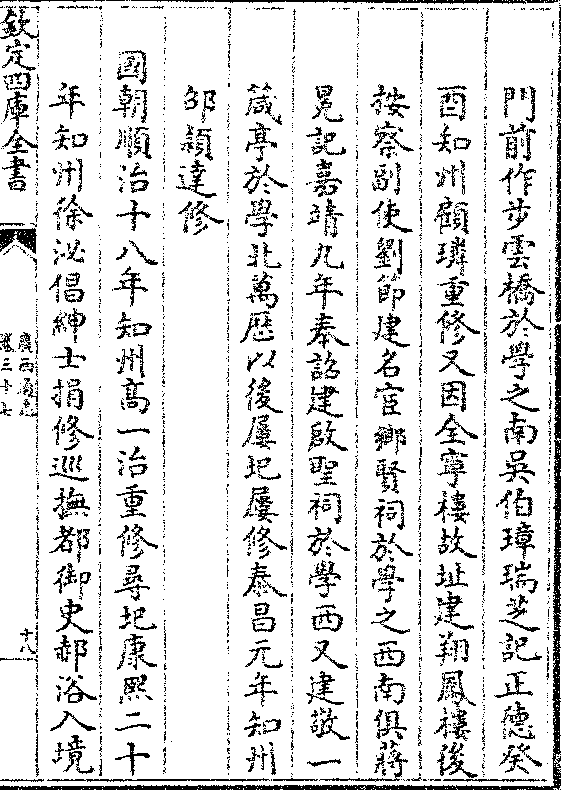 門前作步雲橋於學之南吳伯璋瑞芝記正德癸
酉知州顧璘重修又因全寧樓故址建翔鳳樓後
按察副使劉節建名宦鄉賢祠於學之西南俱蔣
冕記嘉靖九年奉詔建啟聖祠於學西又建敬一
箴亭於學北萬歴以後屢圮屢修泰昌元年知州
邹穎達修
國朝順治十八年知州髙一治重修尋圮康熙二十
年知州徐泌倡紳士捐修巡撫都御史郝浴入境
欽定四庫全書
廣西通志
卷三十七
十八